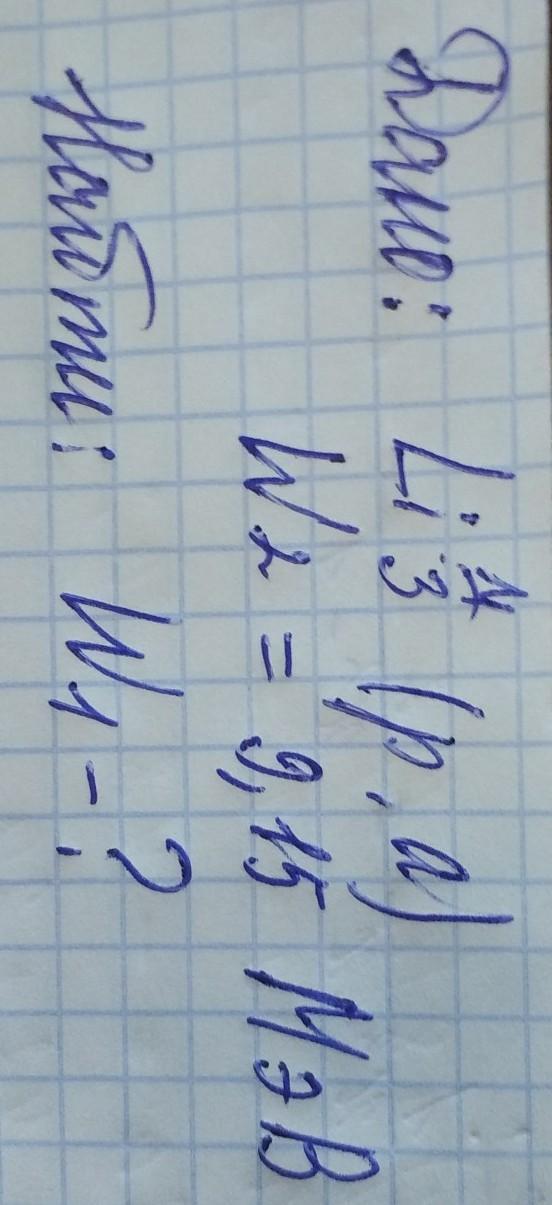 Дано: Li ⁷₃ (p, α)
W₂ = 9,15 МэВ
Найти: W₁ - ?